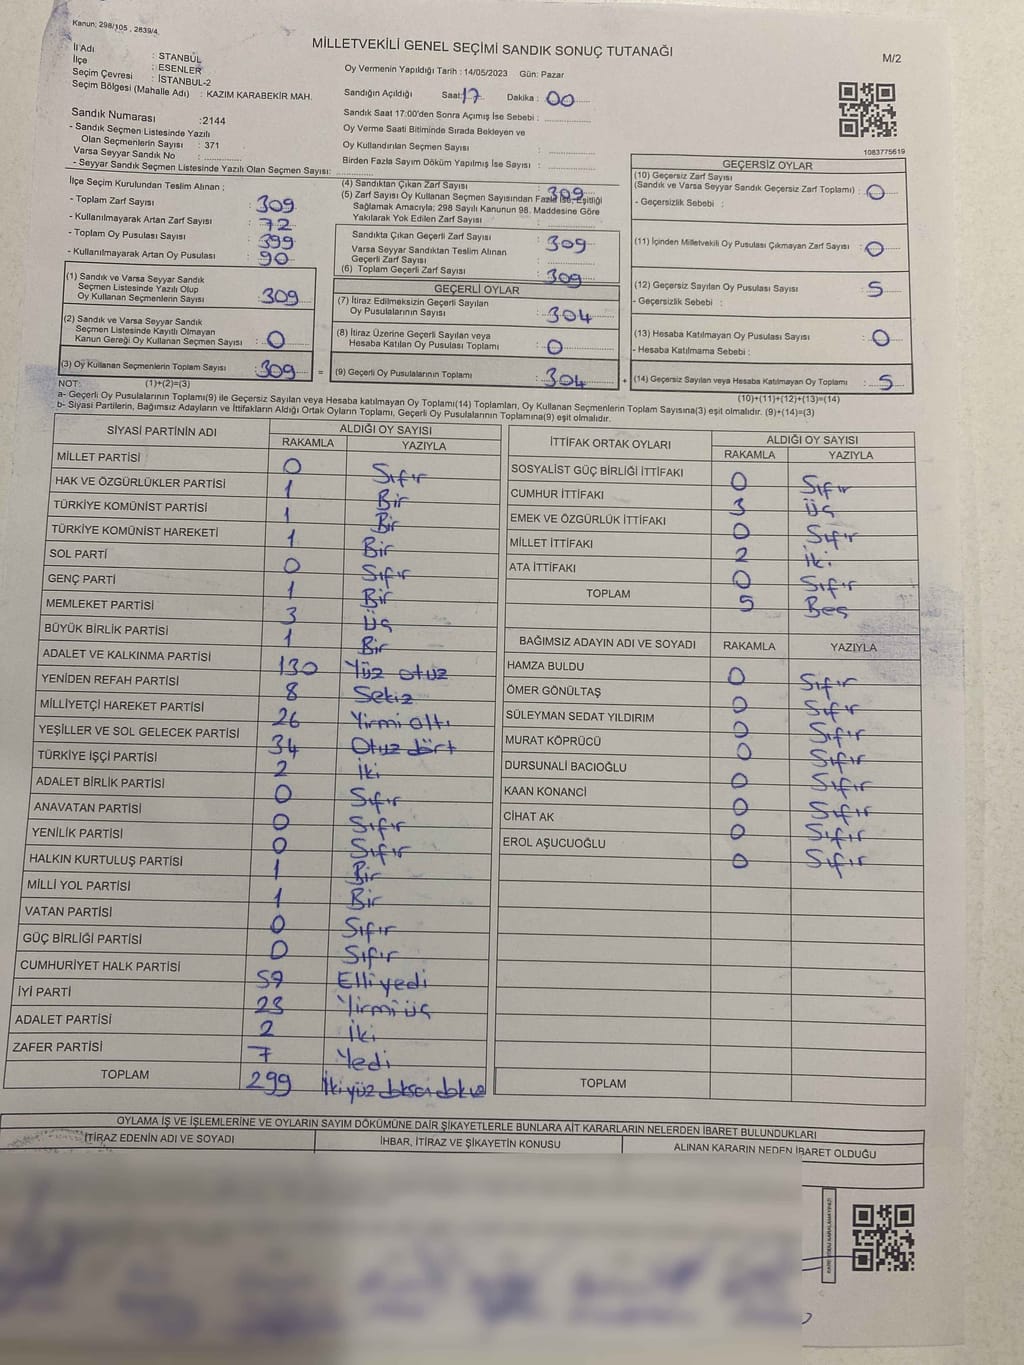 Kanun; 298/105 , 2839/4
MİLLETVEKİLİ GENEL SEÇİMİ SANDIK SONUÇ TUTANAĞI
M/2
İl Adı : STANBUL
İlçe : ESENLER
Seçim Çevresi : İSTANBUL-2
Seçim Bölgesi (Mahalle Adı) : KAZIM KARABEKİR MAH.
Oy Vermenin Yapıldığı Tarih : 14/05/2023 Gün: Pazar
Sandığın Açıldığı Saat: 17 Dakika : 00
Sandık Saat 17:00'den Sonra Açımış İse Sebebi :
Oy Verme Saati Bitiminde Sırada Bekleyen ve
Oy Kullandırılan Seçmen Sayısı :
Birden Fazla Sayım Döküm Yapılmış İse Sayısı :
1083775619
Sandık Numarası :2144
- Sandık Seçmen Listesinde Yazılı
Olan Seçmenlerin Sayısı : 371
Varsa Seyyar Sandık No :
- Seyyar Sandık Seçmen Listesinde Yazılı Olan Seçmen Sayısı:
İlçe Seçim Kurulundan Teslim Alınan ;
- Toplam Zarf Sayısı : 309
- Kullanılmayarak Artan Zarf Sayısı : 72
- Toplam Oy Pusulası Sayısı : 399
- Kullanılmayarak Artan Oy Pusulası : 90
(1) Sandık ve Varsa Seyyar Sandık
Seçmen Listesinde Yazılı Olup
Oy Kullanan Seçmenlerin Sayısı : 309
(2) Sandık ve Varsa Seyyar Sandık
Seçmen Listesinde Kayıtlı Olmayan
Kanun Gereği Oy Kullanan Seçmen Sayısı : 0
(3) Oy Kullanan Seçmenlerin Toplam Sayısı : 309 =
(4) Sandıktan Çıkan Zarf Sayısı : 309
(5) Zarf Sayısı Oy Kullanan Seçmen Sayısından Fazla İse, Eşitliği
Sağlamak Amacıyla; 298 Sayılı Kanunun 98. Maddesine Göre
Yakılarak Yok Edilen Zarf Sayısı :
Sandıkta Çıkan Geçerli Zarf Sayısı : 309
Varsa Seyyar Sandıktan Teslim Alınan
Geçerli Zarf Sayısı :
(6) Toplam Geçerli Zarf Sayısı : 309
GEÇERLİ OYLAR
(7) İtiraz Edilmeksizin Geçerli Sayılan
Oy Pusulalarının Sayısı : 304
(8) İtiraz Üzerine Geçerli Sayılan veya
Hesaba Katılan Oy Pusulası Toplamı : 0
(9) Geçerli Oy Pusulalarının Toplamı : 304 +
GEÇERSİZ OYLAR
(10) Geçersiz Zarf Sayısı
(Sandık ve Varsa Seyyar Sandık Geçersiz Zarf Toplamı) : 0
- Geçersizlik Sebebi :
(11) İçinden Milletvekili Oy Pusulası Çıkmayan Zarf Sayısı : 0
(12) Geçersiz Sayılan Oy Pusulası Sayısı : 5
- Geçersizlik Sebebi :
(13) Hesaba Katılmayan Oy Pusulası : 0
- Hesaba Katılmama Sebebi :
(14) Geçersiz Sayılan veya Hesaba Katılmayan Oy Toplamı : 5
NOT: (1)+(2)=(3)
(10)+(11)+(12)+(13)=(14)
a- Geçerli Oy Pusulalarının Toplamı(9) ile Geçersiz Sayılan veya Hesaba Katılmayan Oy Toplamı(14) Toplamları, Oy Kullanan Seçmenlerin Toplam Sayısına(3) eşit olmalıdır.
b- Siyasi Partilerin, Bağımsız Adayların ve İttifakların Aldığı Ortak Oyların Toplamı, Geçerli Oy Pusulalarının Toplamına(9) eşit olmalıdır. (9)+(14)=(3)
SİYASİ PARTİNİN ADI ALDIĞI OY SAYISI
RAKAMLA YAZIYLA
MİLLET PARTİSİ 0 Sıfır
HAK VE ÖZGÜRLÜKLER PARTİSİ 1 Bir
TÜRKİYE KOMÜNİST PARTİSİ 1 Bir
TÜRKİYE KOMÜNİST HAREKETİ 1 Bir
SOL PARTİ 0 Sıfır
GENÇ PARTİ 1 Bir
MEMLEKET PARTİSİ 3 Üç
BÜYÜK BİRLİK PARTİSİ 1 Bir
ADALET VE KALKINMA PARTİSİ 130 Yüz otuz
YENİDEN REFAH PARTİSİ 8 Sekiz
MİLLİYETÇİ HAREKET PARTİSİ 26 Yirmi altı
YEŞİLLER VE SOL GELECEK PARTİSİ 34 Otuz dört
TÜRKİYE İŞÇİ PARTİSİ 2 İki
ADALET BİRLİK PARTİSİ 0 Sıfır
ANAVATAN PARTİSİ 0 Sıfır
YENİLİK PARTİSİ 0 Sıfır
HALKIN KURTULUŞ PARTİSİ 1 Bir
MİLLİ YOL PARTİSİ 1 Bir
VATAN PARTİSİ 0 Sıfır
GÜÇ BİRLİĞİ PARTİSİ 0 Sıfır
CUMHURİYET HALK PARTİSİ 57 Elli yedi
İYİ PARTİ 23 Yirmi üç
ADALET PARTİSİ 2 İki
ZAFER PARTİSİ 7 Yedi
TOPLAM 299
İTTİFAK ORTAK OYLARI ALDIĞI OY SAYISI
RAKAMLA YAZIYLA
SOSYALİST GÜÇ BİRLİĞİ İTTİFAKI 0 Sıfır
CUMHUR İTTİFAKI 3 Üç
EMEK VE ÖZGÜRLÜK İTTİFAKI 0 Sıfır
MİLLET İTTİFAKI 2 İki
ATA İTTİFAKI 0 Sıfır
TOPLAM 5 Beş
BAĞIMSIZ ADAYIN ADI VE SOYADI RAKAMLA YAZIYLA
HAMZA BULDU 0 Sıfır
ÖMER GÖNÜLTAŞ 0 Sıfır
SÜLEYMAN SEDAT YILDIRIM 0 Sıfır
MURAT KÖPRÜCÜ 0 Sıfır
DURSUNALİ BACIOĞLU 0 Sıfır
KAAN KONANCİ 0 Sıfır
CİHAT AK 0 Sıfır
EROL AŞUCUOĞLU 0 Sıfır
TOPLAM
OYLAMA İŞ VE İŞLEMLERİNE VE OYLARIN SAYIM DÖKÜMÜNE DAİR ŞİKAYETLERLE BUNLARA AİT KARARLARIN NELERDEN İBARET BULUNDUKLARI
İTİRAZ EDENİN ADI VE SOYADI İHBAR, İTİRAZ VE ŞİKAYETİN KONUSU ALINAN KARARIN NEDEN İBARET OLDUĞU